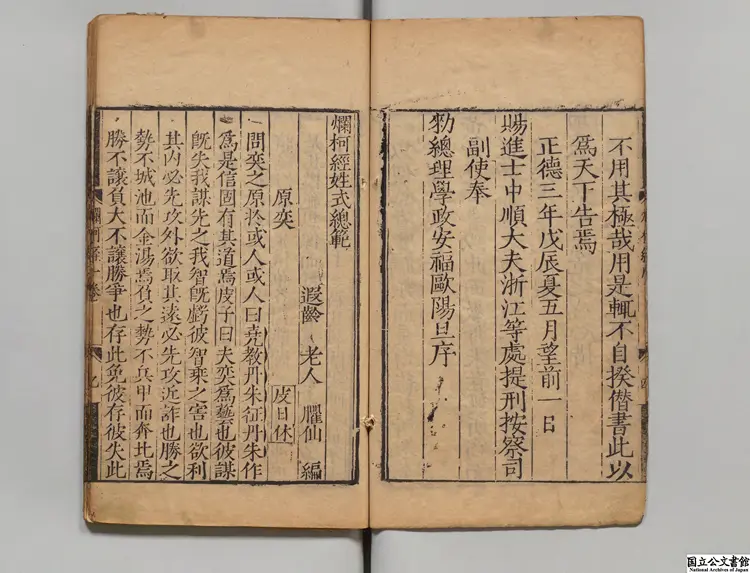 不用其極哉用是輒不自揆僭書此以
爲天下告焉
正德三年戊辰夏五月望前一日
賜進士中順大夫浙江等處提刑按察司
副使奉
勑總理學政安福歐陽旦序
爛柯經姓式總範
遐齡老人臞仙編
原奕
皮日休
問奕之原於或人或人曰堯教丹朱征丹朱作
爲是信固有其道焉皮子曰夫奕爲藝也彼謀
旣失我謀先之我智旣虧彼智乘之害也欲利
其內必先攻外欲取其遠必先攻近詐也勝之
勢不城池而金湯焉負之勢不兵甲而奔北焉
勝不讓負大不讓勝爭也存此免彼存彼失此
国立公文書館
National Archives of Japan